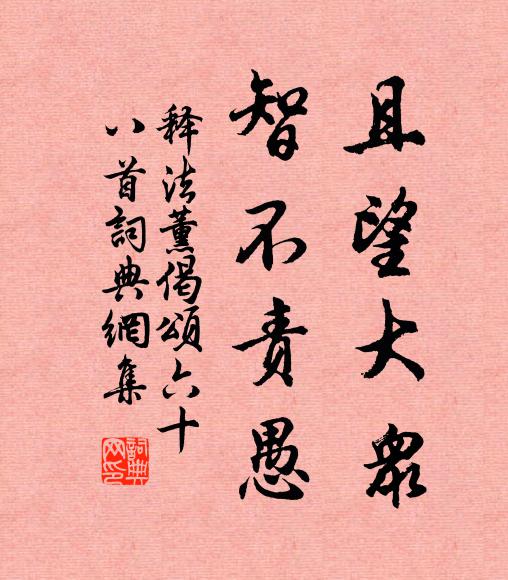 且望大衆
智不責愚
释法薰偈頌六十
八首詞典網集
詞典
网印